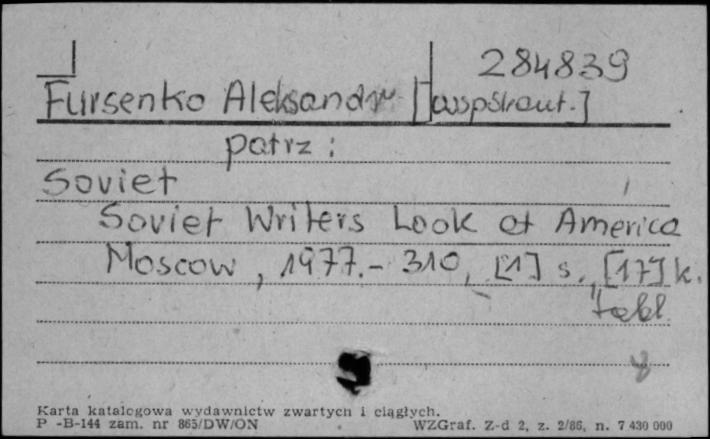 284839
Fursenko Aleksandr [współaut.]
patrz:
Soviet
Soviet Writers Look at America
Moscow, 1977.- 310, [1] s., [17] k.
tabl.
8
Karta katalogowa wydawnictw zwartych i ciągłych.
P -B-144 zam. nr 865/DW/ON WZGraf. Z-d 2, z. 2/86, n. 7 430 000